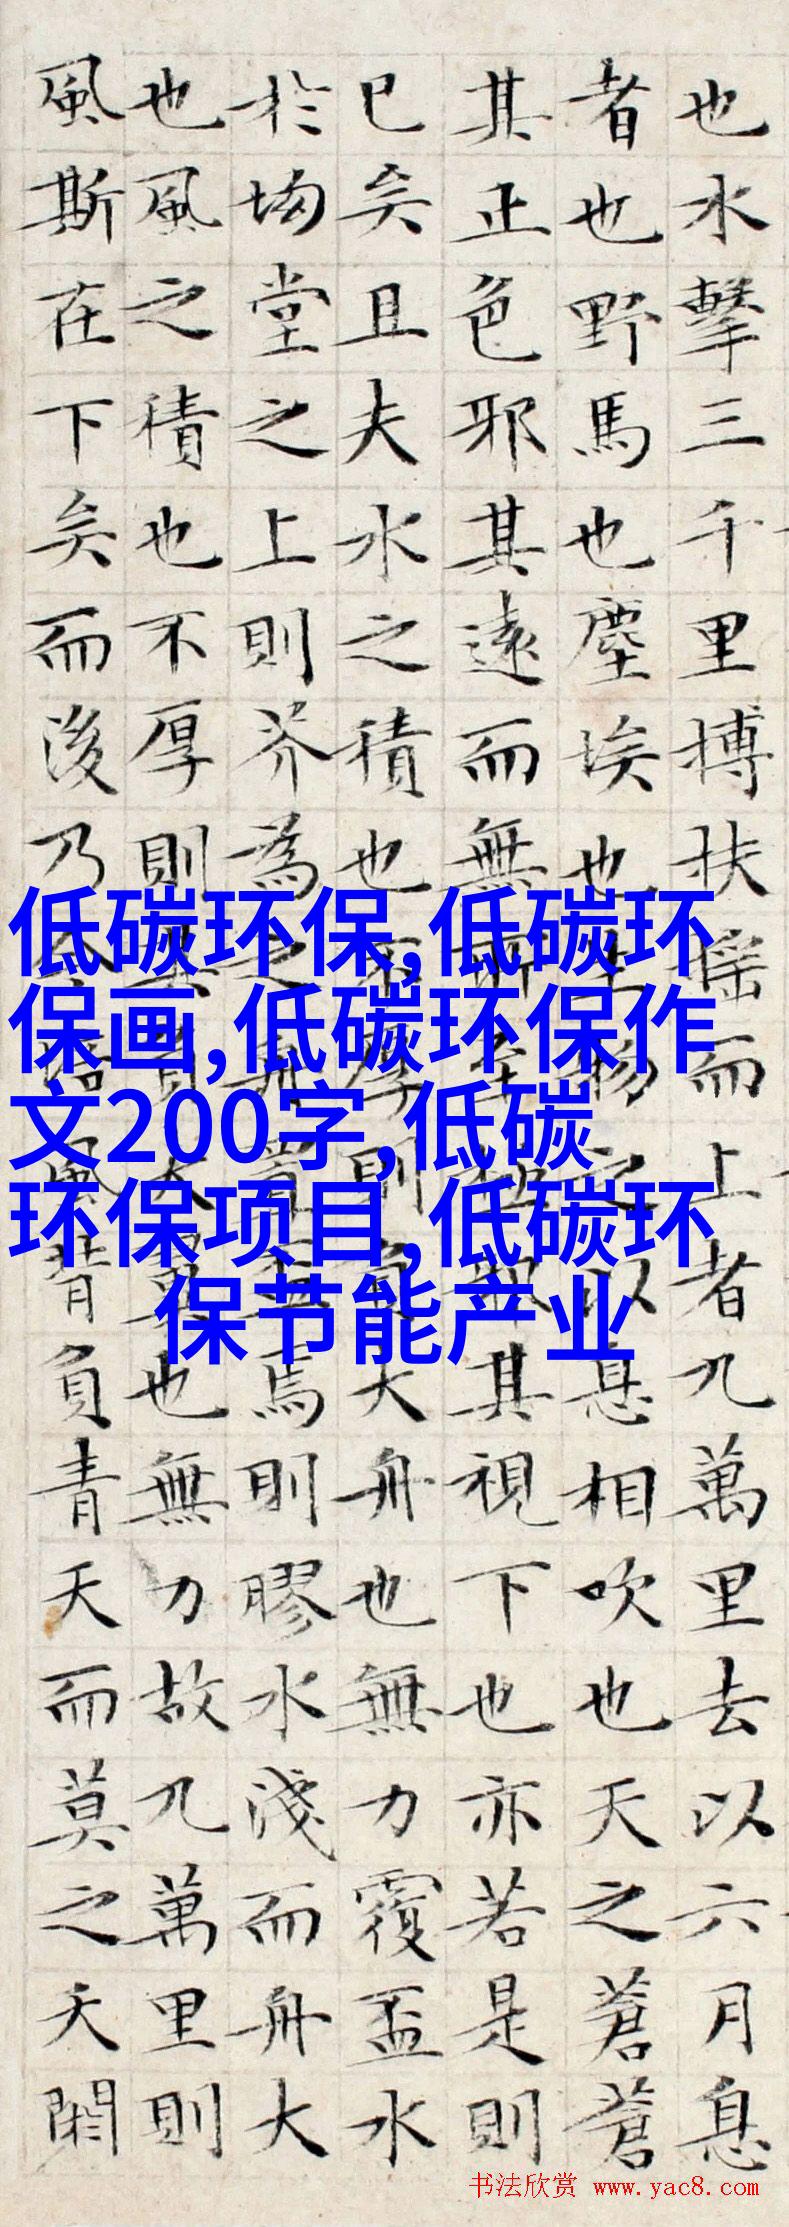 也水擊三千里搏扶搖而上者九萬里去以六月息
者也野馬也塵埃也生物之以息相吹也天之蒼蒼
其正色邪其遠而無所至極邪其視下也亦若是則
已矣且夫水之積也不厚則負大舟也無力覆盃水
於坳堂之上則芥為之舟置盃焉則膠水淺而舟大
也風之積也不厚則其負大翼也無力故九萬里則
風斯在下矣而後乃今培風背負青天而莫之夭閼
低碳环保,低碳环
保画,低碳环保作
文200字,低碳
环保项目,低碳环
保节能产业
书法欣赏 www.yac8.com